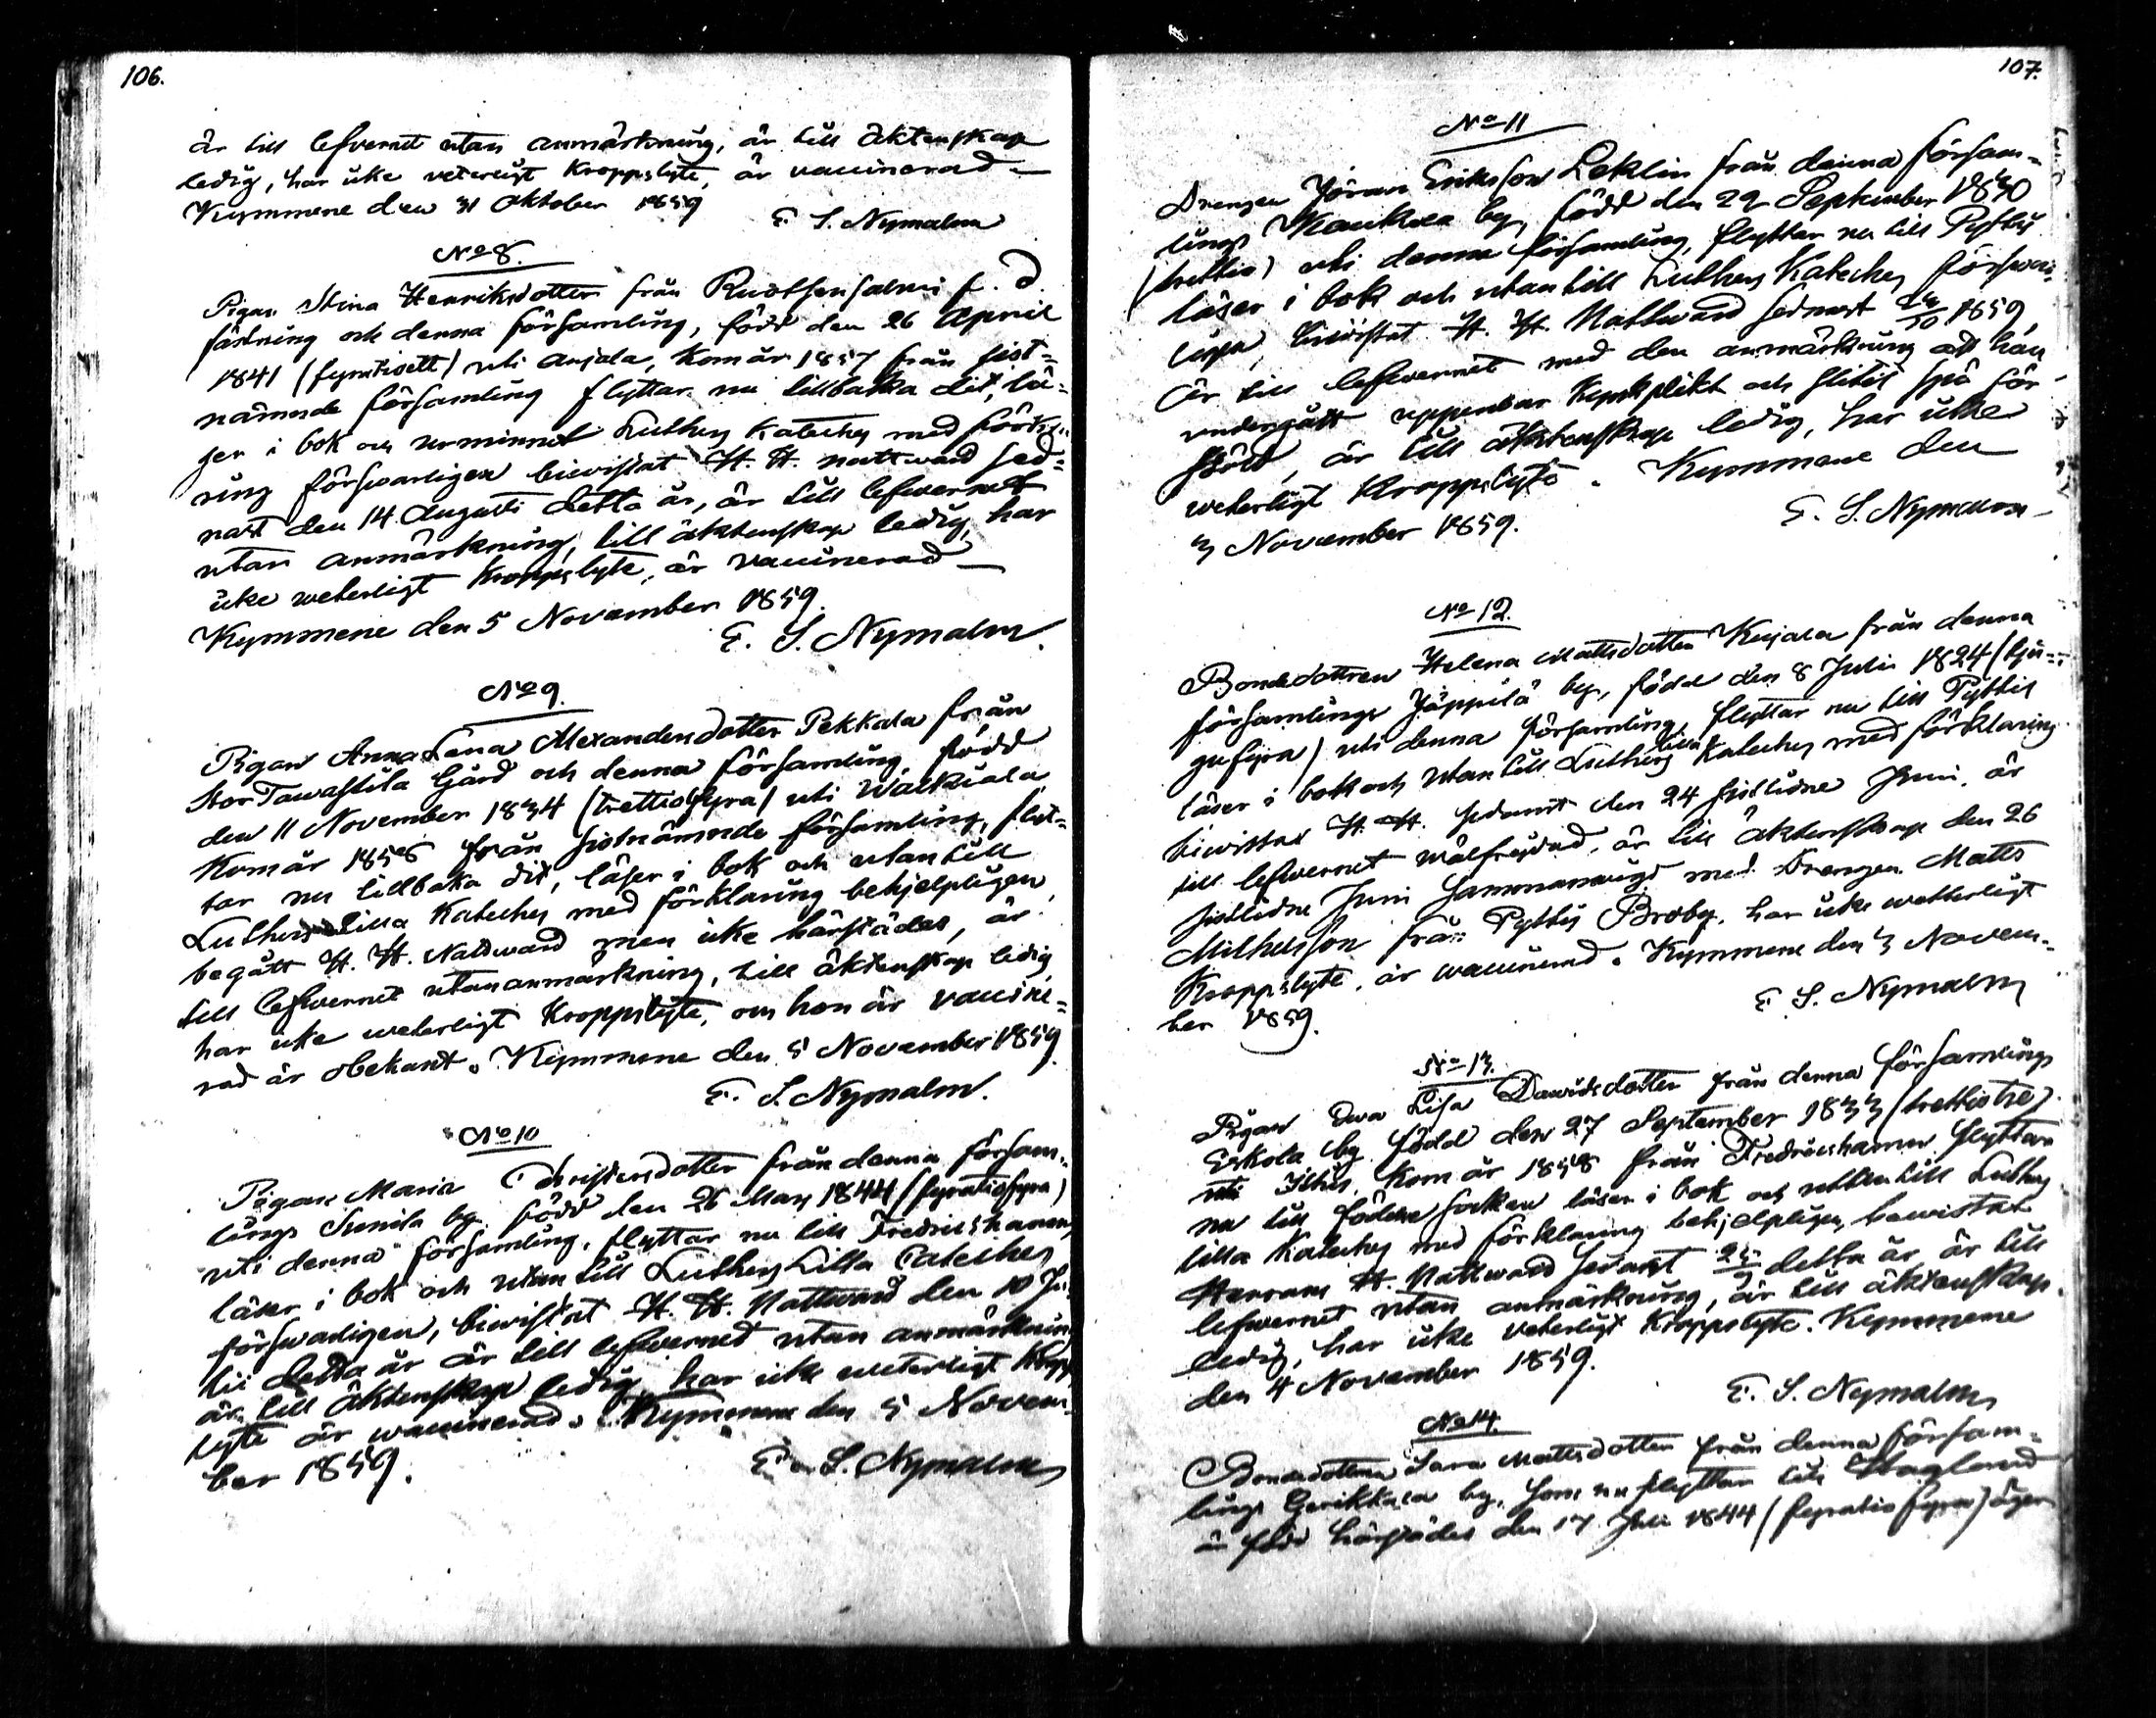 106.
är till lefvernet utan anmärkning, är till äktenskap
ledig, har icke veterligt Kroppslyte, är vaccinerad –
Kymmene den 31 Oktober 1859
E. S. Nymalm
No 8.
Pigan Stina Henriksdotter från Ruotsensalmi f. d.
fästning och denna församling, född den 26 April
1841 (fyratioett) uti Anjala, Kom år 1857 från sist-
nämnde församling flyttar nu tillbaka dit, lä-
ser i bok och urminnet Luthers Kateches med förkla-
ring försvarligen bievistat H. H. nattvard sed-
nast den 14 Augusti detta år, är till lefvernet
utan anmärkning, till äktenskap ledig, har
icke weterligt Kroppslyte, är vaccinerad –
Kymmene den 5 November 1859.
E. S. Nymalm.
No 9.
Pigan Anna Lena Alexandersdotter Pekkala från
Stor Tawastila Gård och denna församling, född
den 11 November 1834 (trettiofyra) uti Walkiala
Kom år 1858 från sistnämnde församling, flyt-
tar nu tillbaka dit, läser i bok och utantill
Luthers Lilla Kateches med förklaring behjelpligen,
begått H. H. Nattward men icke härstädes, är
till lefwernet utan anmärkning, till äktenskap ledig
har icke weterligt Kroppslyte, om hon är vaccine-
rad är obekant. Kymmene den 5 November 1859.
E. S. Nymalm.
No 10
Pigan Maria Christersdotter från denna försam-
lings Sunila by, född den 26 Maj 1844 (fyratiofyra)
uti denna församling, flyttar nu till Fredrikshamn,
läser i bok och utan till Luthers Lilla Cateches
försvarligen, bievistat H. H. Nattward den 10 Ju-
lii detta år är till lefwernet utan anmärkning
är till äktenskap ledig har icke weterligt Kropps
lyte är waccinerad. Kymmene den 5 Novem-
ber 1859.
E. S. Nymalm
107.
No 11
Drengen Jöran Eriksson Leklin från denna försam-
lings Kaukola by, född den 22 September 1830
(trettio) uti denna församling, flyttar nu till Pyttis
läser i bok och utantill Luthers Kateches försvar-
bievistat H. H. Nattward sednast 1859,
är till lefwernet med den anmärkning att han
undergått uppenbar Kyrkoplikt och slitit spö för
stöld, är till äktenskap ledig, har icke
weterligt Kroppslyte. Kymmene den
3 November 1859.
E. S. Nymalm
No 12.
Bondedottren Helena Mattsdotter Kujala från denna
församlings Jäppilä by, född den 8 Julii 1824 (tju-
gufyra) uti denna församling, flyttar nu till Pyttis
läser i bok och utan till Luthers lilla Kateches med förklaring
biewistat H. H. sednast den 24 sistlidne Juni, är
till lefwernet wälfrejdad, är till äktenskap den 26
sistlidne Juni sammanwigd med Drengen Matts
Mikelsson från Pyttis Broby, har icke wetterligt
Kroppslyte, är waccinerad. Kymmene den 3 Novem-
ber 1859.
E. S. Nymalm
No 13.
Pigan Ewa Lisa Dawidsdotter från denna församlings
Eskola by född den 27 September 1833 (trettiotre)
uti Itis, Kom år 1858 från Fredrikshamn flyttar
nu till födelse socken läser i bok och uttan till Luthers
lilla Kateches med förklaring behjelpligen, bewistat
Herrans H. Nattward sednast detta år är till
lefwernet utan anmärkning, är till äktenskap
ledig, har icke veterligt Kroppslyte. Kymmene
den 4 November 1859.
E. S. Nymalm
No 14.
Bondedottren Sara Mattsdotter från denna försam-
lings by, som nu flyttar till Hogland
är född härstädes den 17 Juli 1844 (fyratiofyra) äger